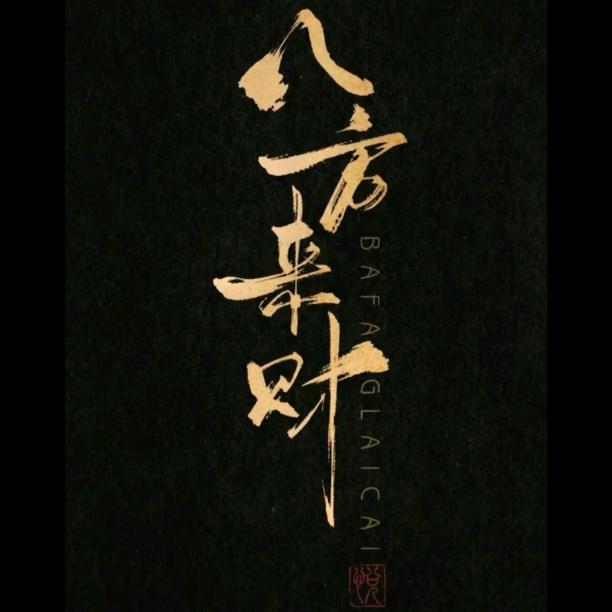 八方来财
BAFANGLAICAI
悦